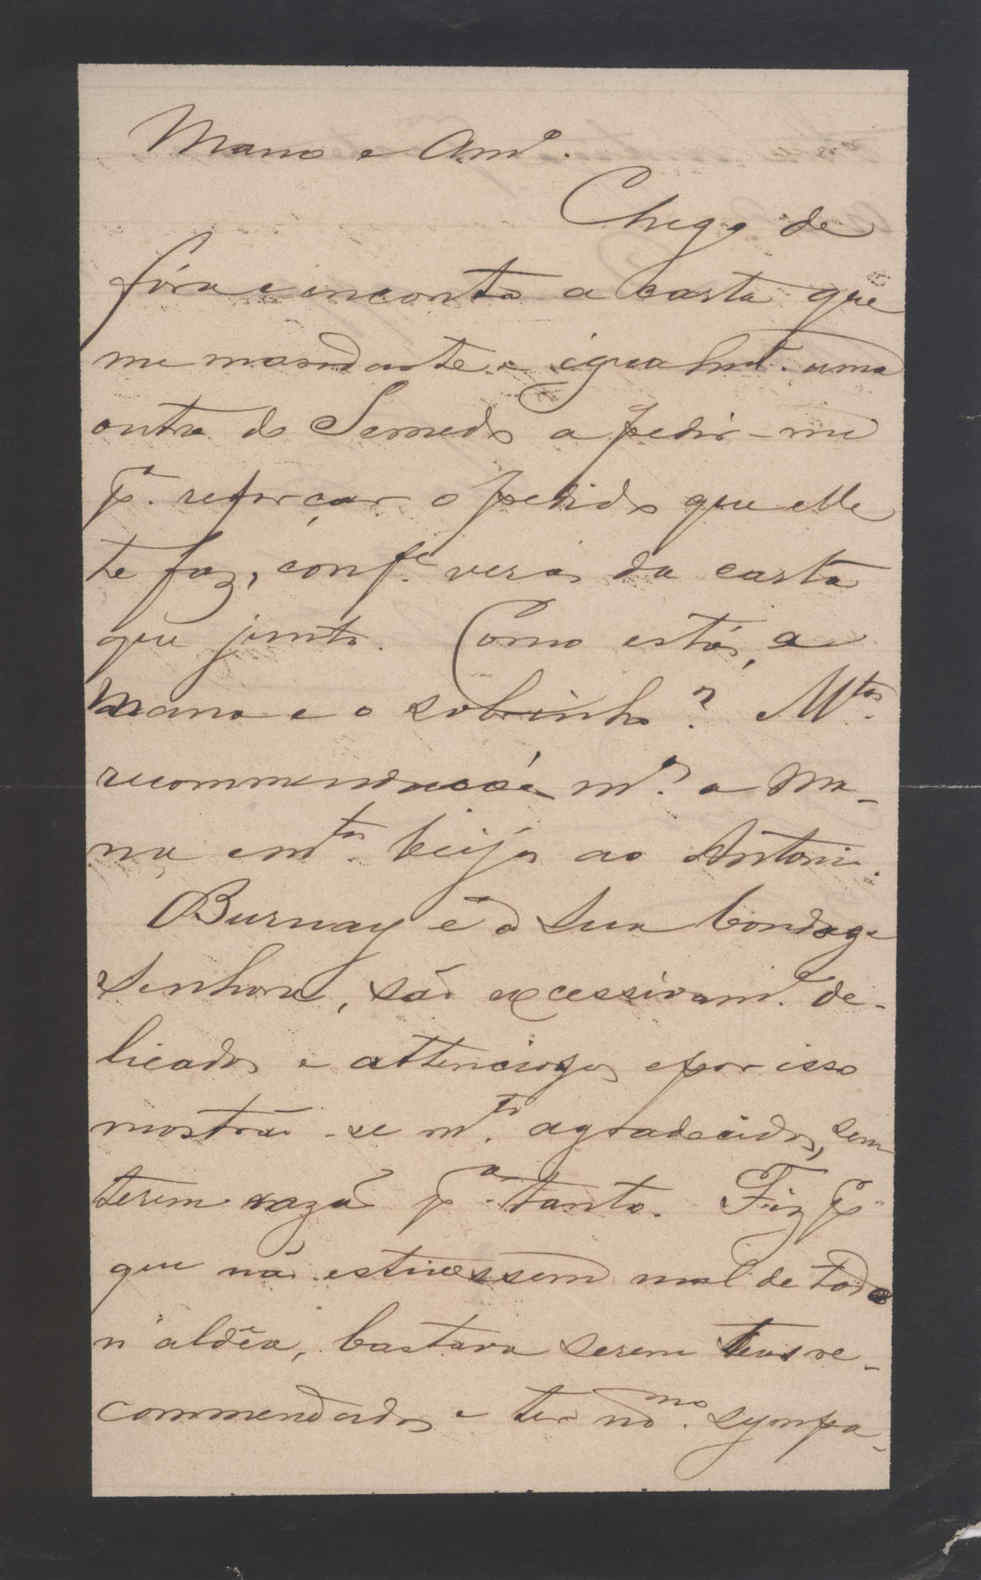 Mano e Am.º
Chego de
fóra e encontro a carta que
me mandaste e igualm.te uma
outra do Semedo a pedir-me
p.ª reforçar o pedido que elle
te faz, conf.e veras da carta
que junto. Como estás, a
Mana e o sobrinho? M.tas
recommendações m.as a Ma-
na e m.tos beijos ao Antonio.
Burnay é a sua bondosa
Senhora, são excessivam.e de-
licados e attenciosos e por isso
mostrão-se m.to agradecidos, sem
terem razão p.ª tanto. Fiz p.
que não estivessem mal de todo
n'aldêa, bastava serem teus re-
commendados e ter no mmo. sympa-